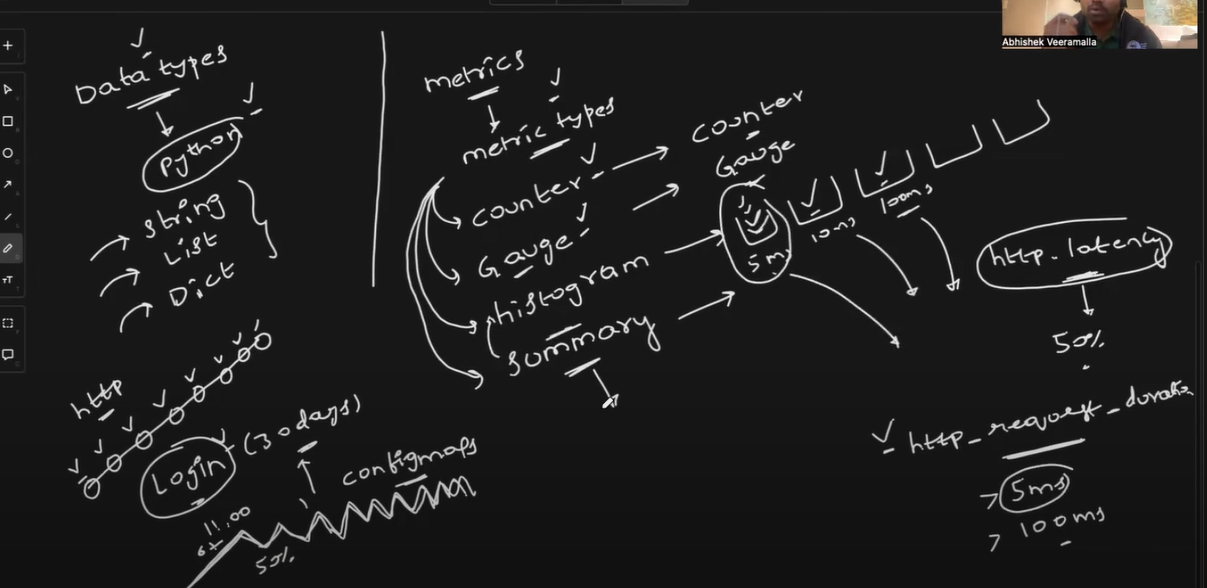 Abhishek Veeramalla
Data types
Python
string
List
Dict
http
Login
(30 days)
configmaps
11.00
50%
metrics
metric types
counter
Gauge
histogram
summary
counter
Gauge
5m
10ms
100ms
http_latency
50%
http_request_duration
> 5ms
> 100ms
T